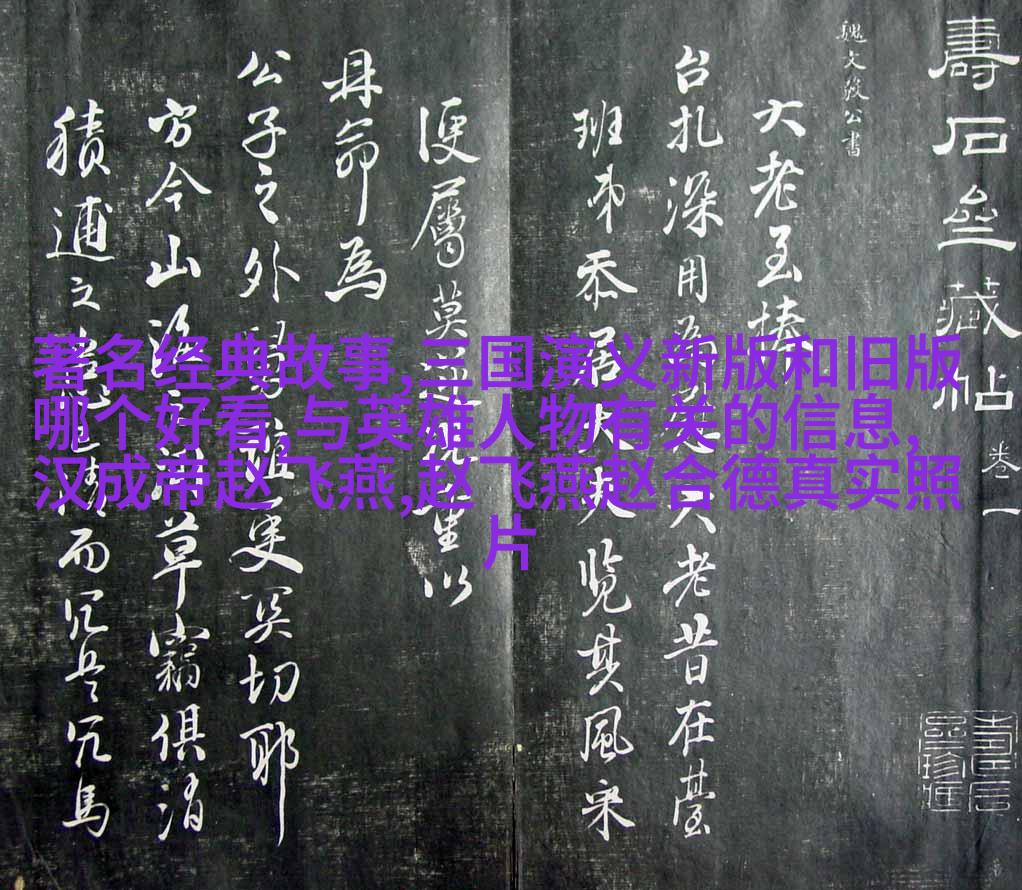 壽石亝藏帖 卷一
魏文毅公書
大老至捧
台扎深用 大老昔在臺
班弟忝居 夫覽其風采
便屬莫 以
冄命為
公子之外 切耶
方今山 草竊俱消
積逋之 而冗兵冗馬
著名经典故事,三国演义新版和旧版
哪个好看,与英雄人物有关的信息,
汉成帝赵飞燕,赵飞燕赵合德真实照
片